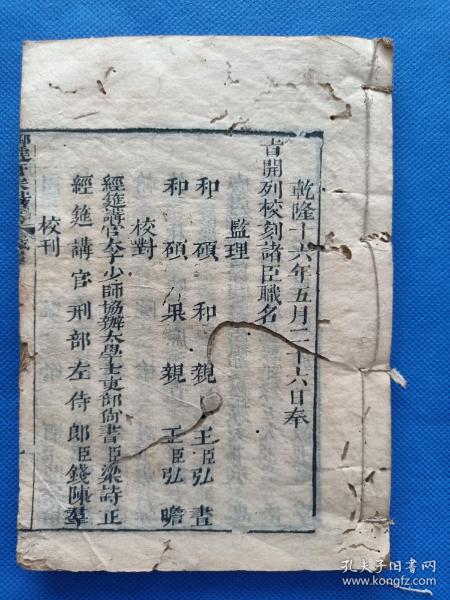 乾隆十六年五月二十六日奉
旨開列校刻諸臣職名
監理
和碩和親王臣弘晝
和碩果親王臣弘瞻
校對
經筵講官太子少師協辦大學士吏部尚書臣梁詩正
經筵講官刑部左侍郎臣錢陳羣
校刊
孔夫子旧书网
www.kongfz.com